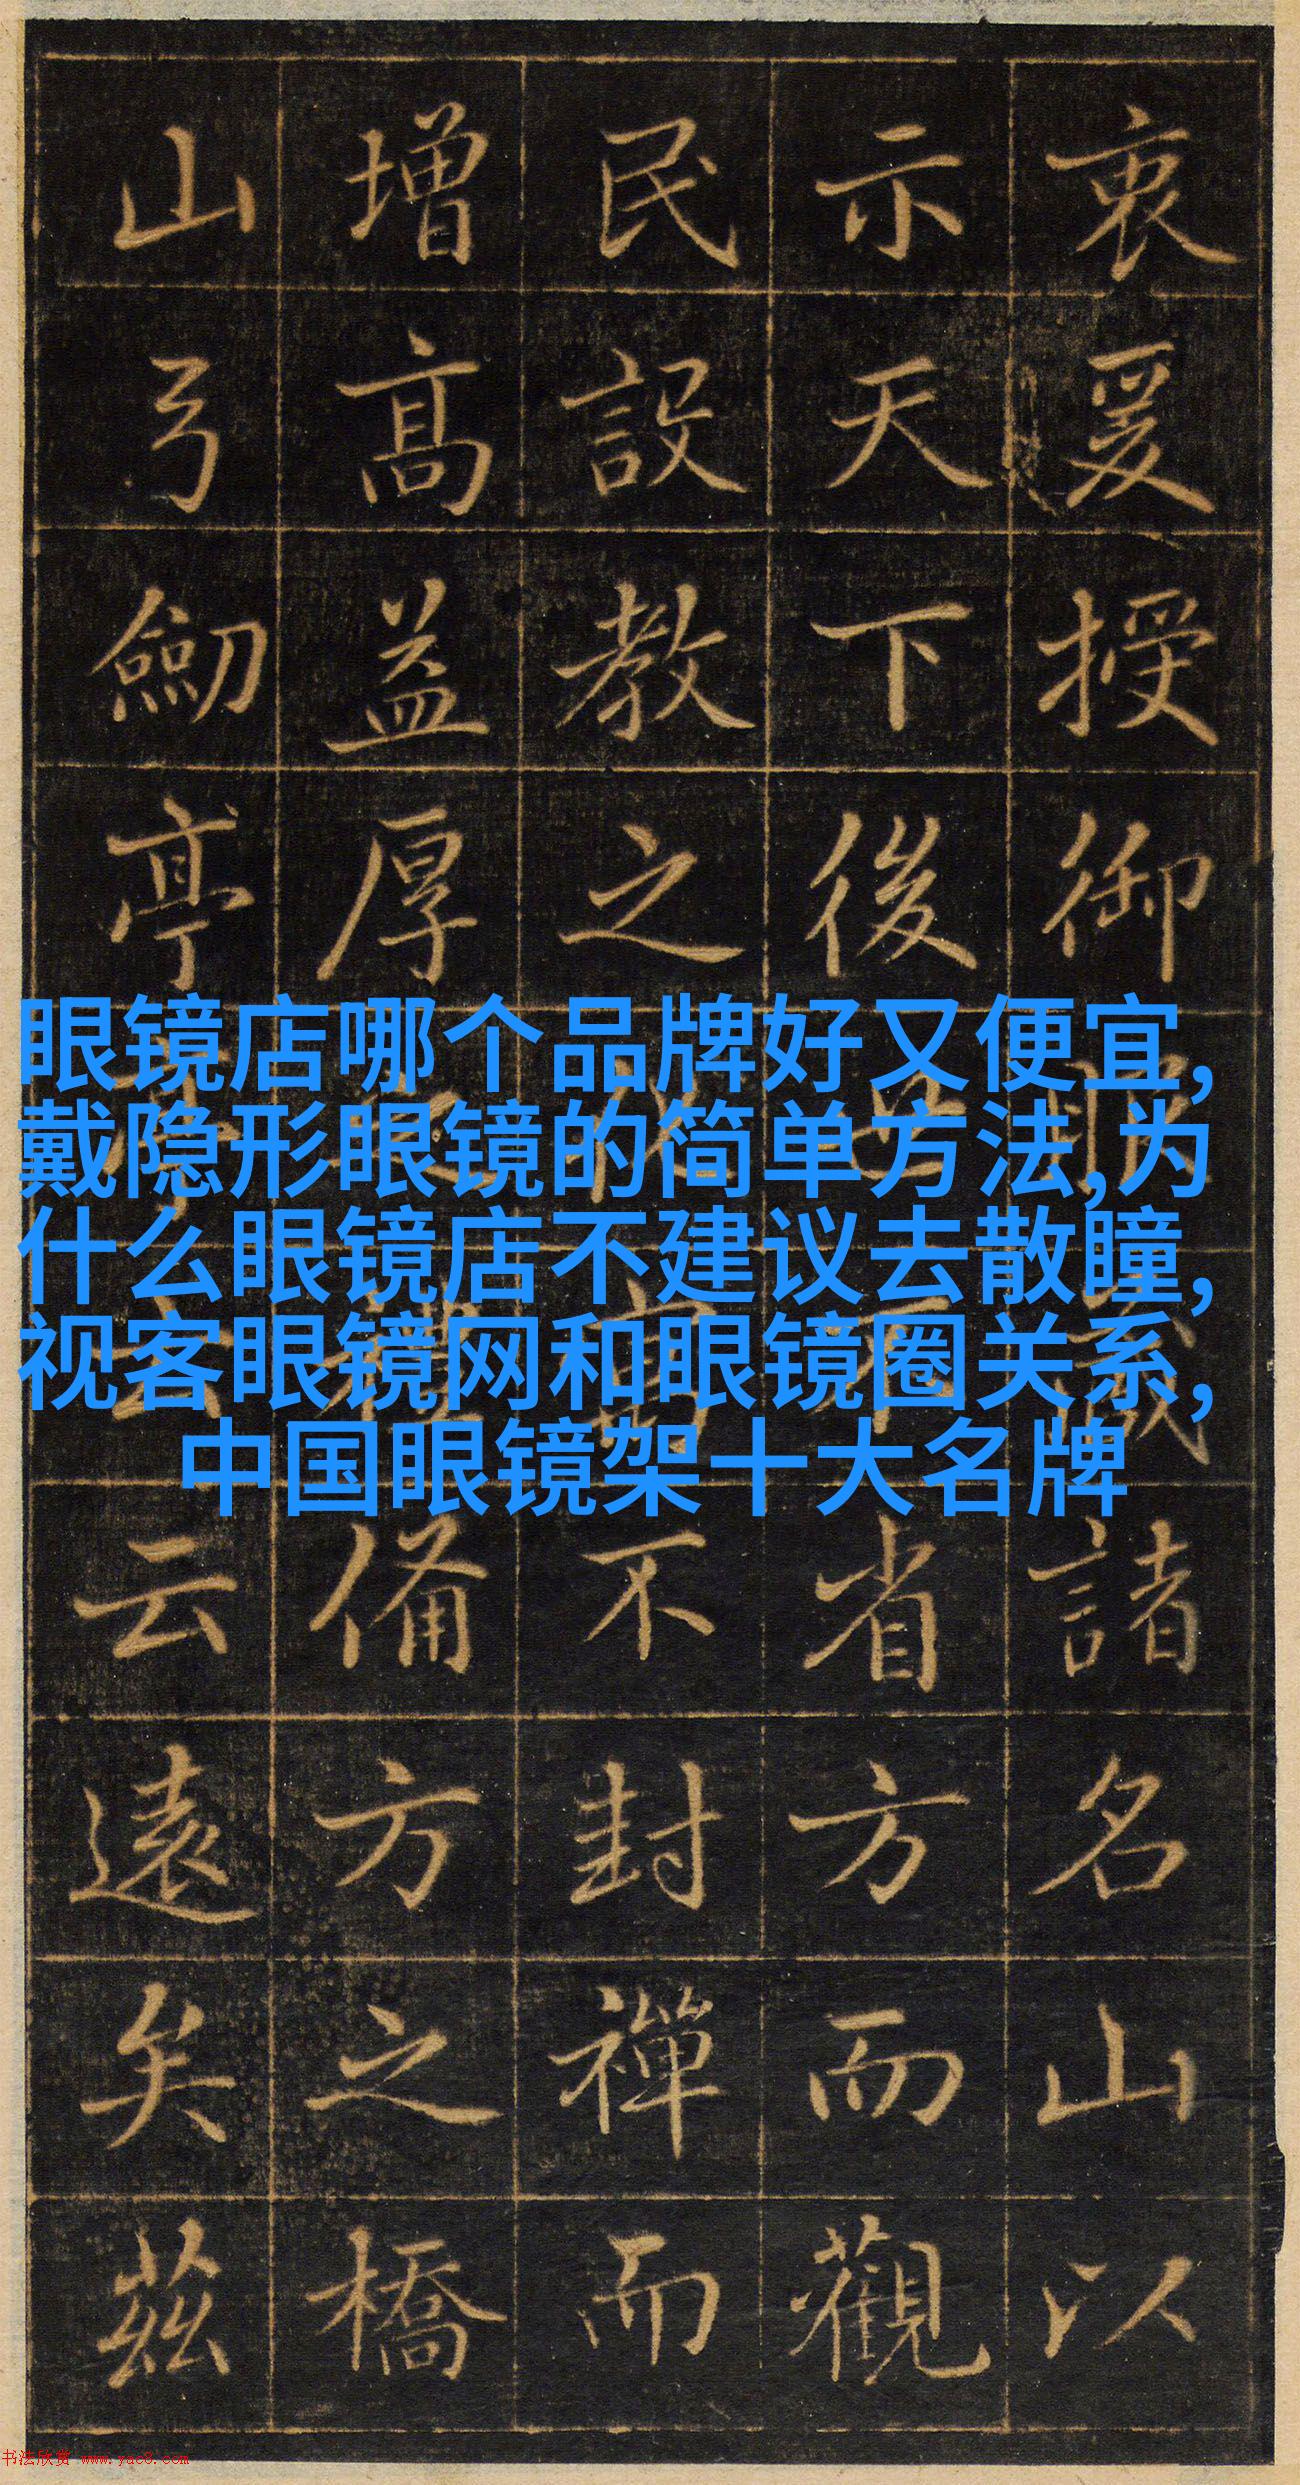 衷爰授御諸名山以
示天下後世省方而觀
民設教之不封禪而
增高益厚之禮備方之橋
山弓劒亭亭云云遠矣茲
眼镜店哪个品牌好又便宜,
戴隐形眼镜的简单方法,为
什么眼镜店不建议去散瞳,
视客眼镜网和眼镜圈关系,
中国眼镜架十大名牌
书法欣赏 www.yac8.com